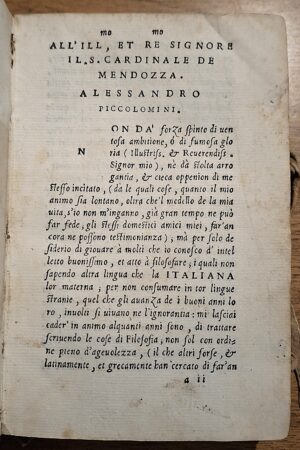 mo mo
ALL'ILL, ET RE SIGNORE
IL.S. CARDINALE DE
MENDOZZA.
ALESSANDRO
PICCOLOMINI.
NON DA' forza spinto di uen
tosa ambitione, ó di fumosa glo
ria (Illustriss. & Reuerendiss.
Signor mio), nè dà stolta arro
gantia, & cieca oppenion di me
stesso incitato, (da le quali cose, quanto il mio
animo sia lontano, oltre che'l modello de la mia
uita, s'io non m'inganno, già gran tempo ne può
far fede, gli stessi domestici amici miei, far'an
cora ne possono testimonianza) mà per solo de
siderio di giouare à molti che io conosco d'intel
letto buonissimo, et atto à filosofare; i quali non
sapendo altra lingua che la ITALIANA
lor materna; per non consumare in tor lingue
stranie, quel che gli auanza de i buoni anni lo
ro, inuolti si uiuano ne l'ignorantia: mi lasciai
cader' in animo alquanti anni sono, di trattare
scriuendo le cose di Filosofia; non sol con ordi
ne pieno d'ageuolezza, (il che altri forse, &
latinamente, et grecamente han cercato di far'an
a ii